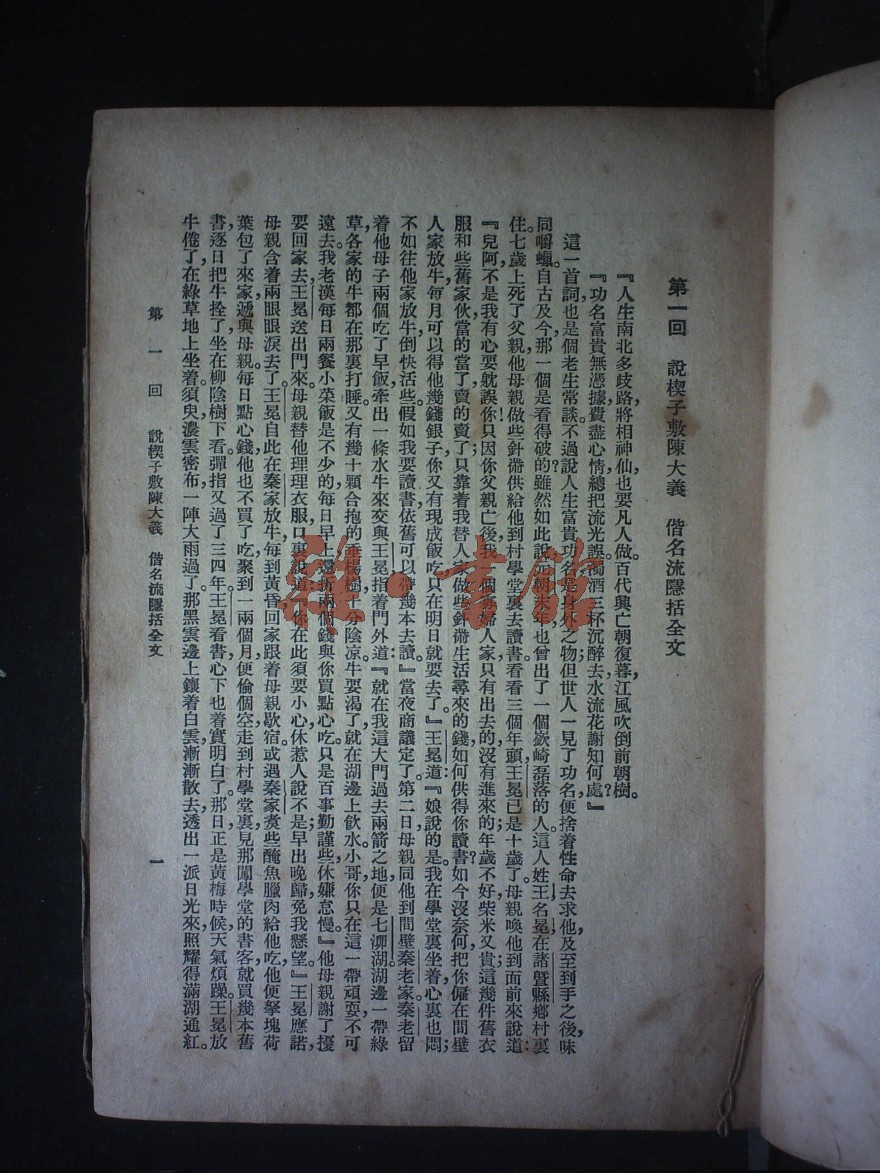 第一回　說楔子敷陳大義　借名流隱括全文
『人生南北多歧路，將相神仙，也要凡人做。百代興亡朝復暮，江風吹倒前朝樹。
『功名富貴無憑據，費盡心情，總把流光誤。濁酒三杯沉醉去，水流花謝知何處？』
這一首詞，也是個老生常談。不過說人生富貴功名，是身外之物；但世人一見了功名，便捨着性命去求他，及至到手之後，味
同嚼蠟。自古及今，那一個是看得破的？雖然如此說，元朝末年，也曾出了一個嶔崎磊落的人。這人姓王名冕，在諸暨縣鄉村裏
住。七歲上死了父親，他母親做些針黹，供給他到村學堂裏去讀書。看看三個年頭，王冕已是十歲了。母親喚他到面前來，說道：
『兒阿！不是我有心要躭誤你，只因你父親亡後，我一個寡婦人家，只有出去的，沒有進來的；年歲不好，柴米又貴；這幾件舊衣
服和些舊家伙，當的當了，賣的賣了；只靠着我替人家做些針黹生活尋來的錢，如何供得你讀書？如今沒奈何，把你僱在間壁
人家放牛，每月可以得他幾錢銀子，你又有現成飯吃，只在明日就要去了。』王冕道：『娘說的是。我在學堂裏坐着，心裏也悶；
不如往他家放牛，倒快活些。假如我要讀書，依舊可以帶幾本去讀。』當夜商議定了。第二日，母親同他到間壁秦老家，秦老留
着他母子兩個吃了早飯，牽出一條水牛來交與王冕，指着門外道：『就在我這大門過去兩箭之地，便是七泖湖，湖邊一帶綠
草，各家的牛都在那裏打睡。又有幾十顆合抱的垂楊樹，十分陰凉，牛要渴了，就在湖邊上飲水。小哥，你只在這一帶頑耍，不可
遠去。我老漢每日兩餐小菜飯是不少的；每日早上，還折兩個錢與你買點心吃。只是百事勤謹些，休嫌怠慢。』他母親謝了擾
要回家去，王冕送出門來，母親替他理理衣服，口裏說道：『你在此須要小心，休惹人說不是；早出晚歸，免我懸望。』王冕應諾，
母親含着兩眼眼淚去了。王冕自此在秦家放牛，每到黃昏，回家跟着母親歇宿。或遇秦家煑些醃魚臘肉給他吃，他便拏塊荷
葉包了來家，遞與母親。每日點心錢，他也不買了吃，聚到一兩個月，便偷個空，走到村學堂裏，見那闖學堂的書客，就買幾本舊
書，逐日把牛拴了，坐在柳陰樹下看。彈指又過了三四年。王冕看書，心下也着實明白了。那日，正是黃梅時候，天氣煩躁。王冕放
牛倦了，在綠草地上坐着。須臾，濃雲密布，一陣大雨過了。那黑雲邊上鑲着白雲，漸漸散去，透出一派日光來，照耀得滿湖通紅。
第一回　說楔子敷陳大義　借名流隱括全文　一